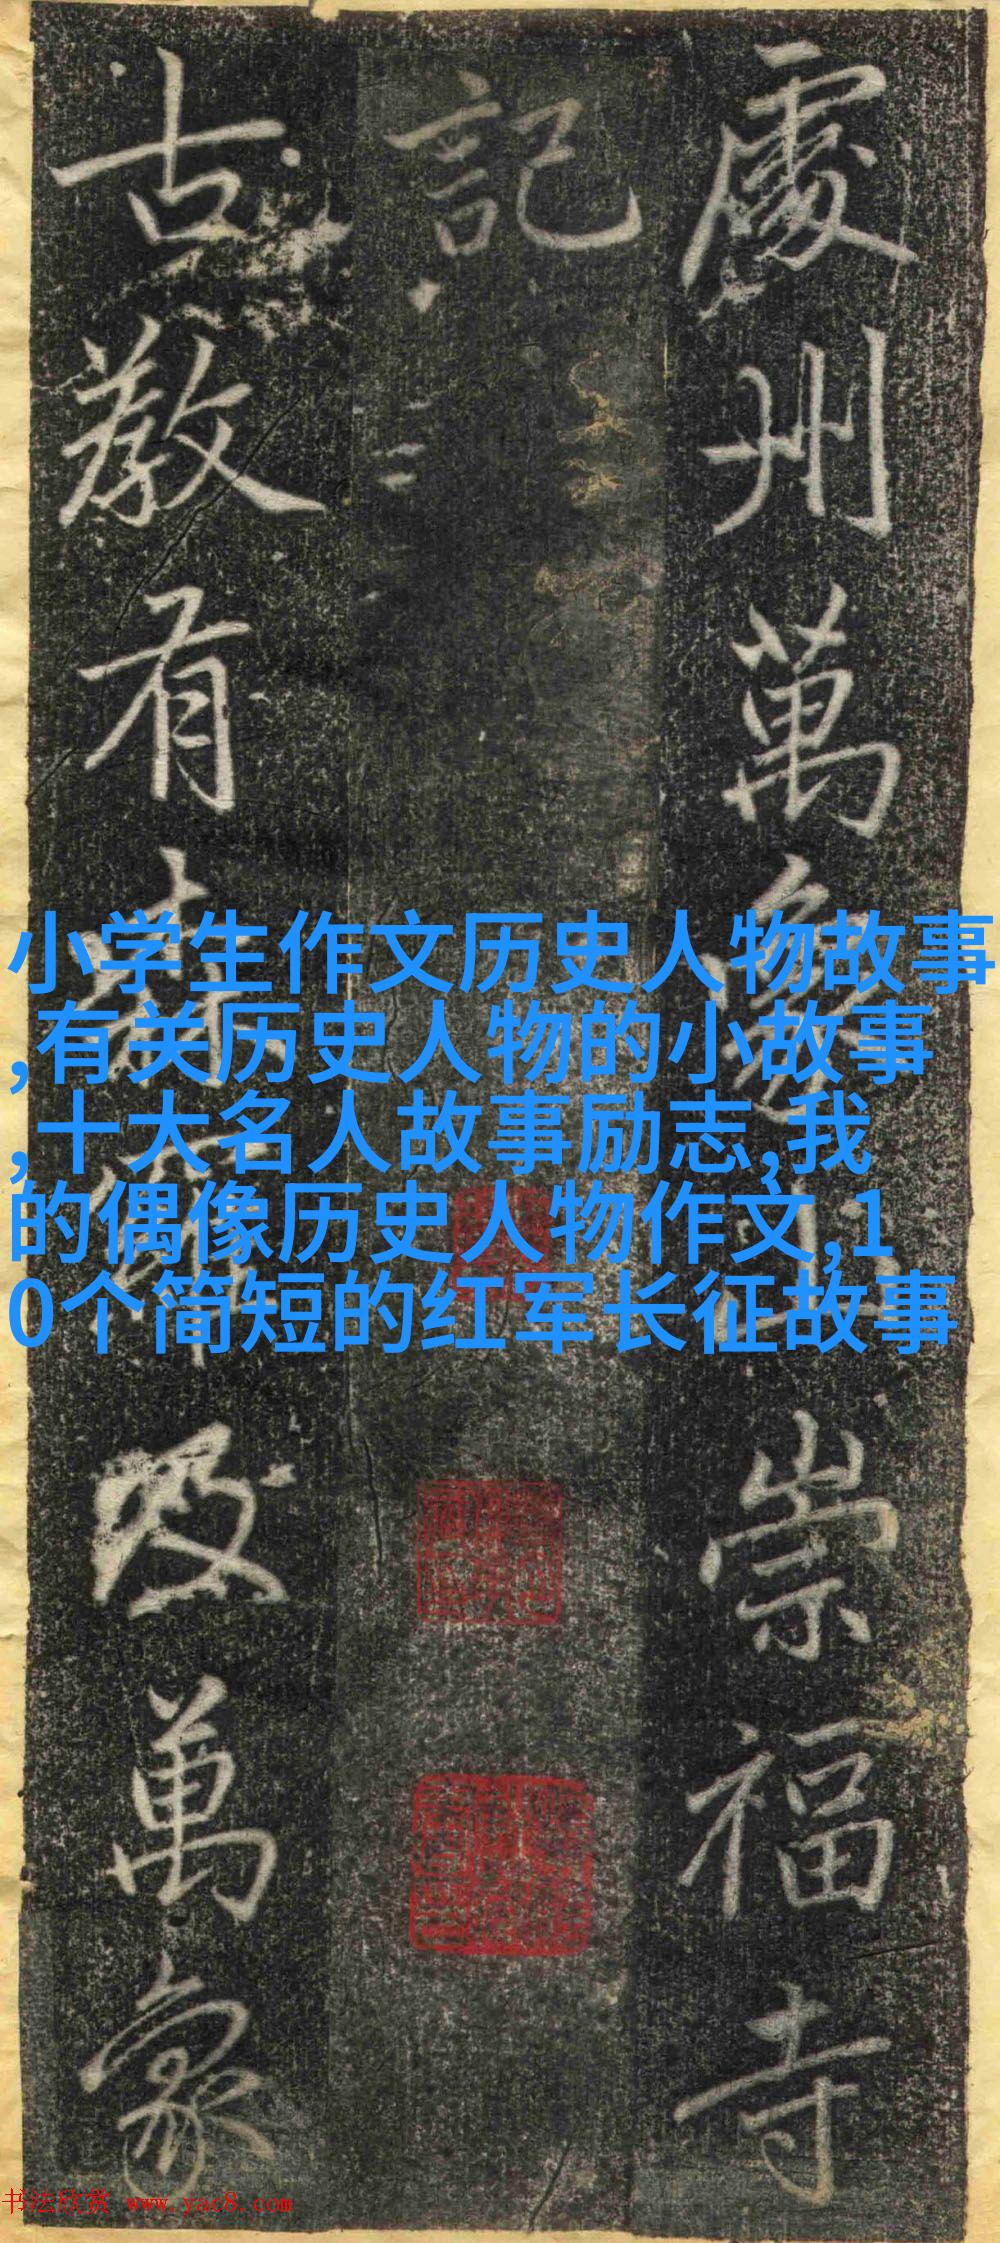 處州萬象山崇福寺
記
古教有
及萬象
小学生作文历史人物故事
,有关历史人物的小故事
,十大名人故事励志,我
的偶像历史人物作文,1
0个简短的红军长征故事
书法欣赏 www.yac8.com